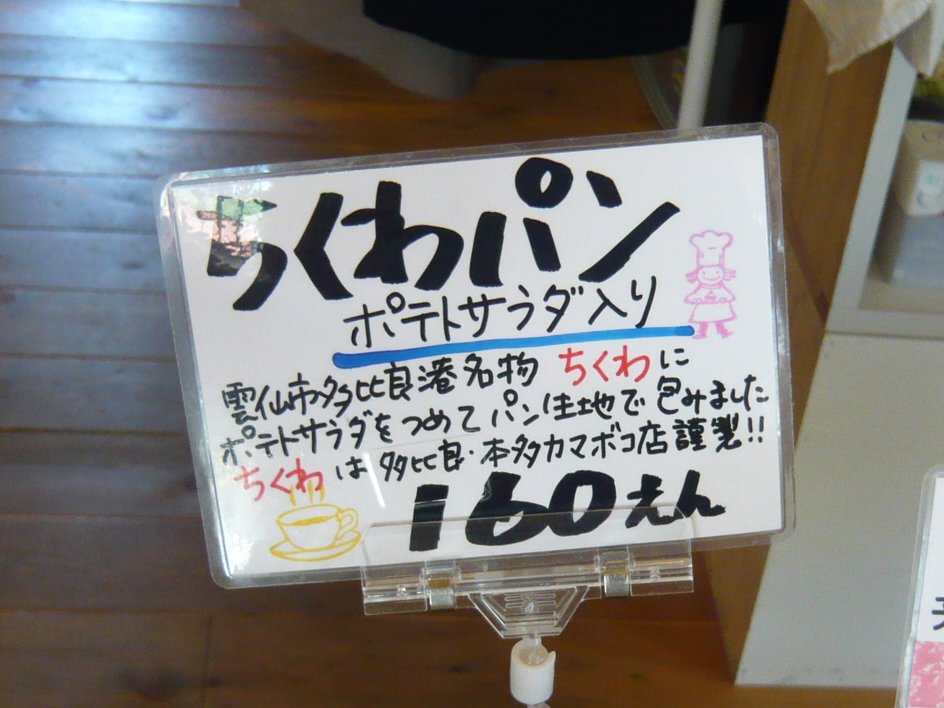 ちくわパン
ポテトサラダ入り
雲仙市多比良港名物 ちくわに
ポテトサラダをつめてパン生地で包みました
ちくわは多比良・本多カマボコ店謹製!!
160えん